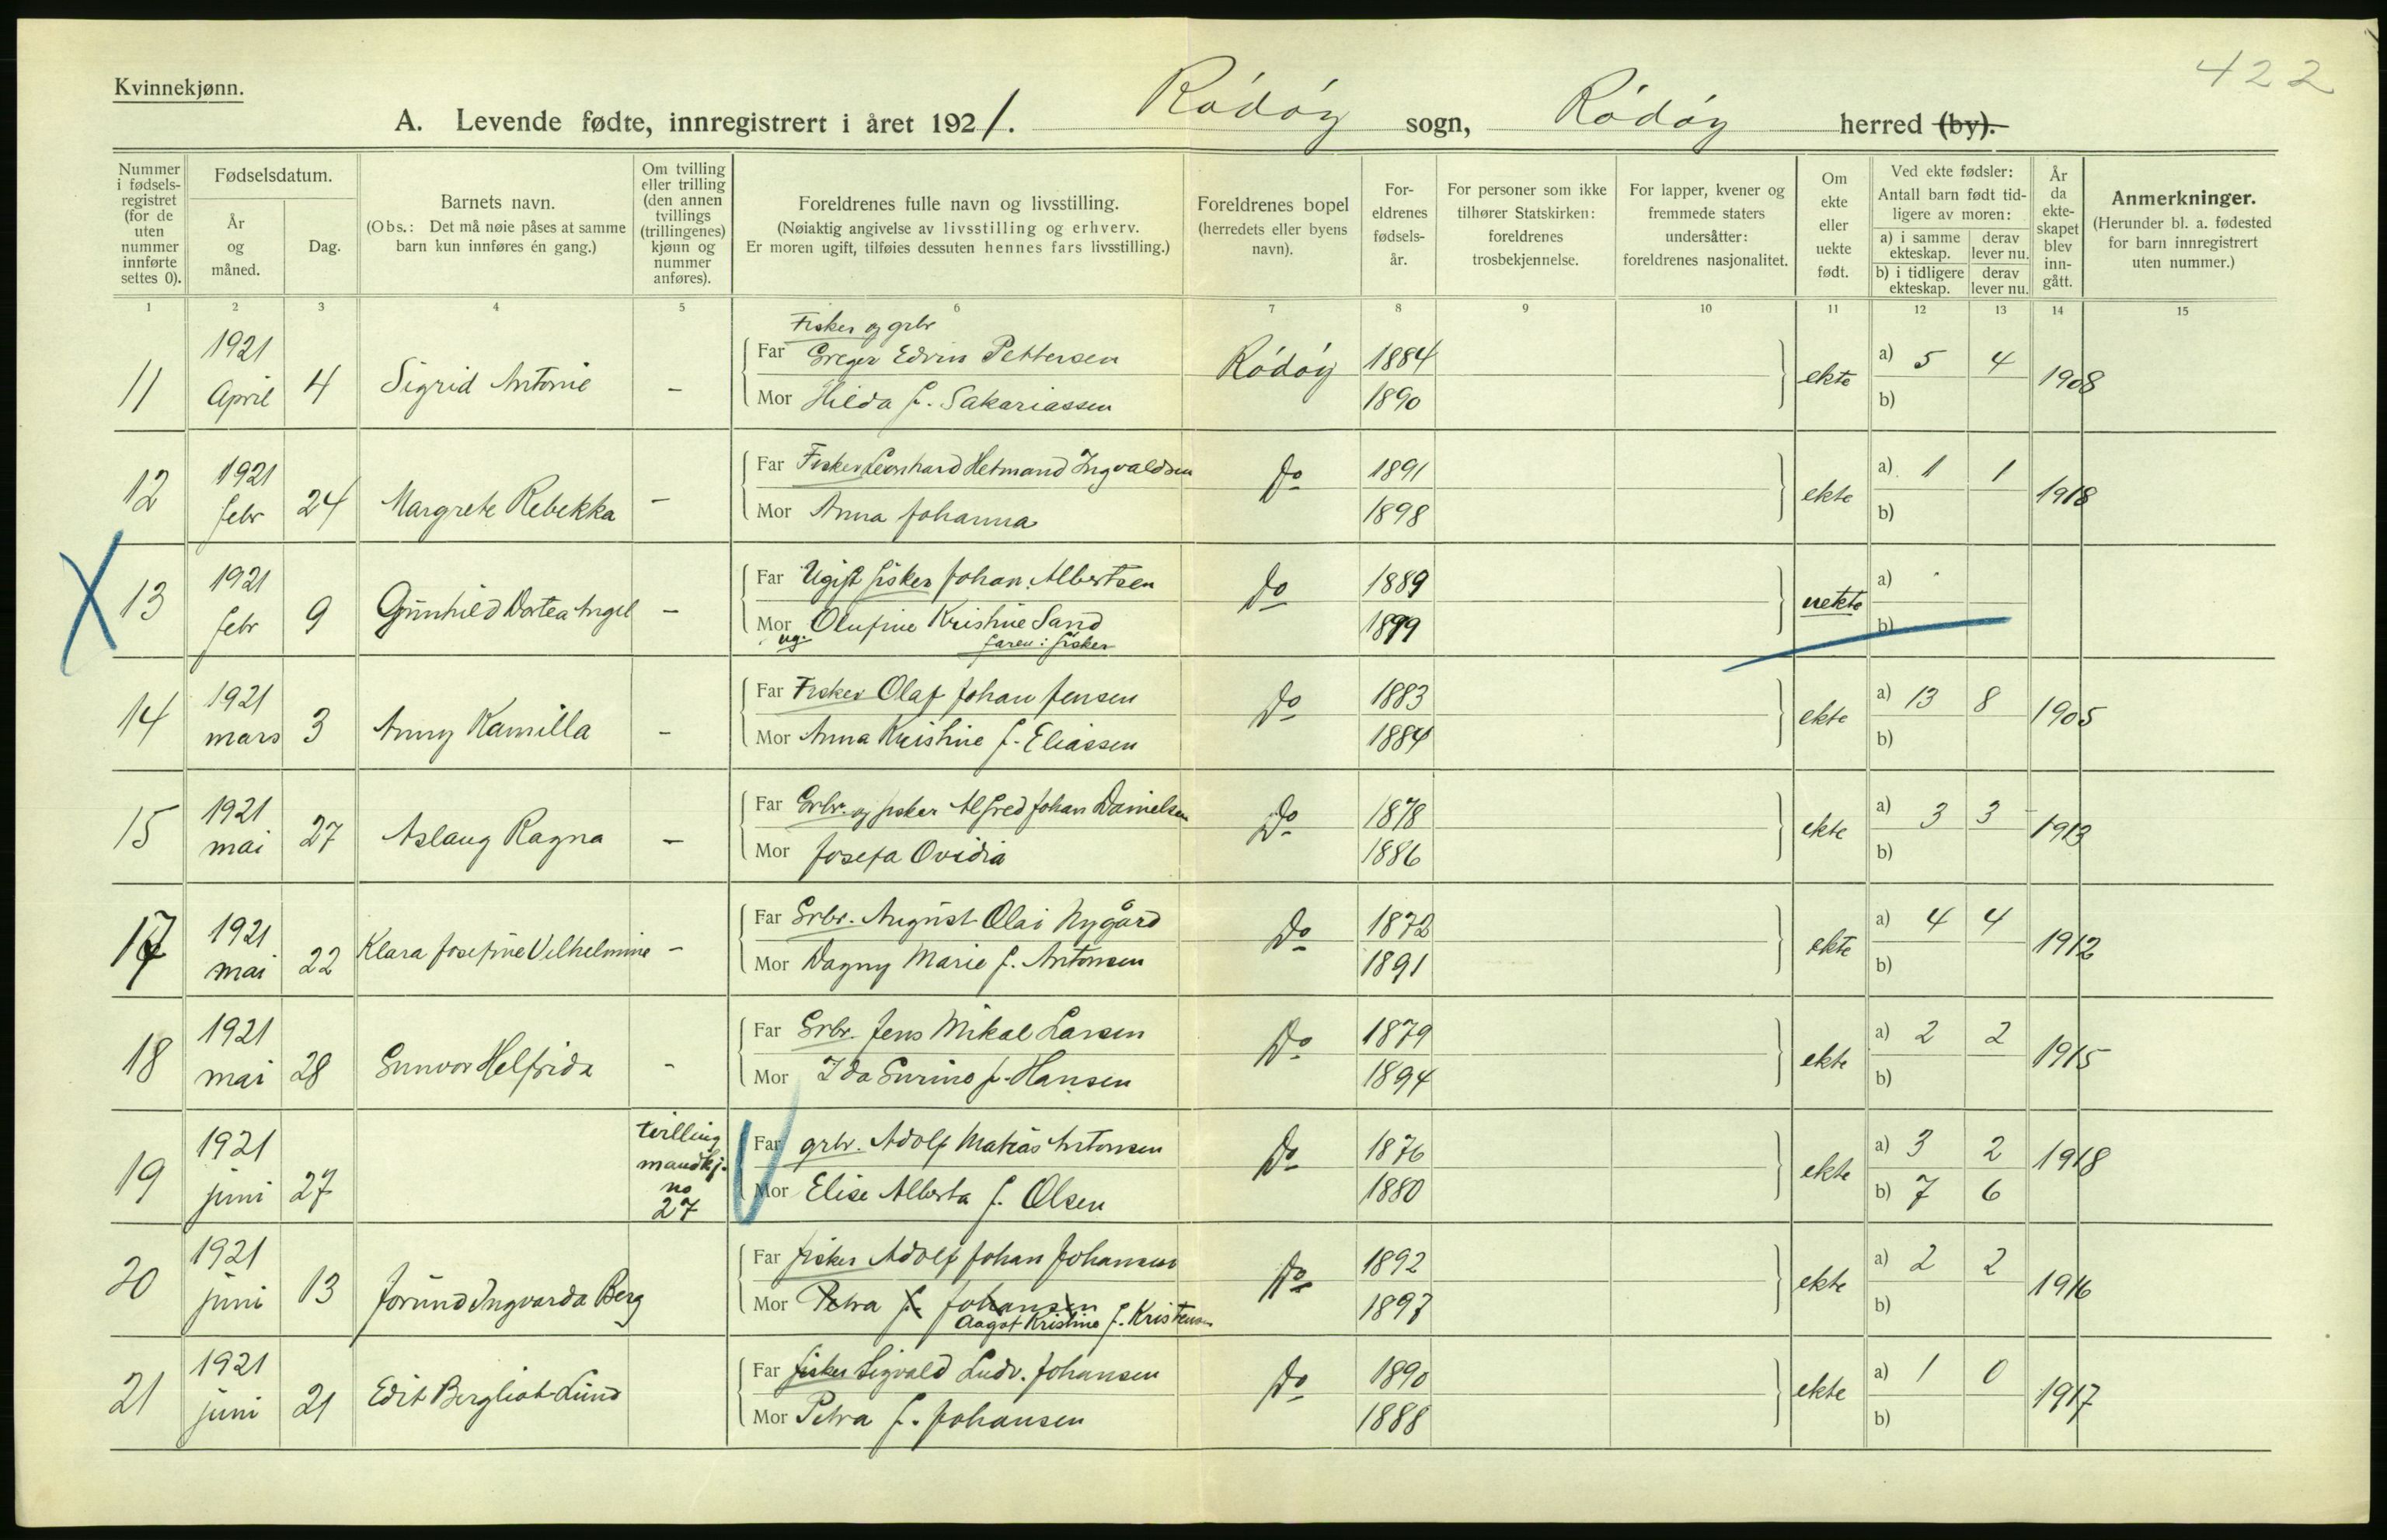 422
Kvinnekjønn.
A. Levende fødte, innregistrert i året 1921. Rödöy sogn, Rödöy herred (by).
Nummer i fødsels-registret (for de uten nummer innførte settes 0).
Fødselsdatum.
År og måned.
Dag.
Barnets navn.
(Obs.: Det må nøie påses at samme barn kun innføres én gang.)
Om tvilling eller trilling (den annen tvillings (trillingenes) kjønn og nummer anføres).
Foreldrenes fulle navn og livsstilling.
(Nøiaktig angivelse av livsstilling og erhverv.
Er moren ugift, tilføies dessuten hennes fars livsstilling.)
Foreldrenes bopel (herredets eller byens navn).
For-eldrenes fødsels-år.
For personer som ikke tilhører Statskirken: foreldrenes trosbekjennelse.
For lapper, kvener og fremmede staters undersåtter: foreldrenes nasjonalitet.
Om ekte eller uekte født.
Ved ekte fødsler:
Antall barn født tid-ligere av moren:
a) i samme ekteskap. derav lever nu.
b) i tidligere ekteskap. derav lever nu.
År da ekte-skapet blev inn-gått.
Anmerkninger.
(Herunder bl. a. fødested for barn innregistrert uten nummer.)
1 2 3 4 5 6 7 8 9 10 11 12 13 14 15
11 1921 April 4 Sigrid Antonie -
Fisker og grbr
Far Greger Edvin Pettersen Rödöy 1884
Mor Hilda f. Sakariassen 1890
ekte a) 5 4 b) 1908
12 1921 febr 24 Margrete Rebekka -
Far Fisker Leonhard Hetmand Ingvaldsen Do 1891
Mor Anna Johanna 1898
ekte a) 1 1 b) 1918
X 13 1921 febr 9 Gunhild Dortea Ingel -
Far Ugift fisker Johan Albertsen Do 1889
Mor Olufine Kristine Sand 1899
ug. faren: fisker
uekte a) b)
14 1921 mars 3 Anny Kamilla -
Far Fisker Olaf Johan Jensen Do 1883
Mor Anna Kristine f. Eliassen 1884
ekte a) 13 8 b) 1905
15 1921 mai 27 Aslaug Ragna -
Far Grbr. og fisker Alfred Johan Danielsen Do 1878
Mor Josefa Ovidia 1886
ekte a) 3 3 b) 1913
17 1921 mai 22 Klara Josefine Vilhelmine -
Far Grbr. August Olai Nygård Do 1872
Mor Dagny Marie f. Antonsen 1891
ekte a) 4 4 b) 1912
18 1921 mai 28 Gunvor Helfrida -
Far Grbr. Jens Mikal Larsen Do 1879
Mor Ida Gurine f. Hansen 1894
ekte a) 2 2 b) 1915
19 1921 juni 27 tvilling mandkj. no 27
Far grbr. Adolf Matias Antonsen Do 1876
Mor Elise Alberta f. Olsen 1880
ekte a) 3 2 b) 7 6 1918
20 1921 juni 13 Jorund Ingvarda Berg
Far fisker Adolf Johan Johansen Do 1892
Mor Petra f. Johansen 1897
Aagot Kristine f. Kristensen
ekte a) 2 2 b) 1916
21 1921 juni 21 Edit Bergliot Lund
Far fisker Sigvald Ludv. Johansen Do 1890
Mor Petra f. Johansen 1888
ekte a) 1 0 b) 1917